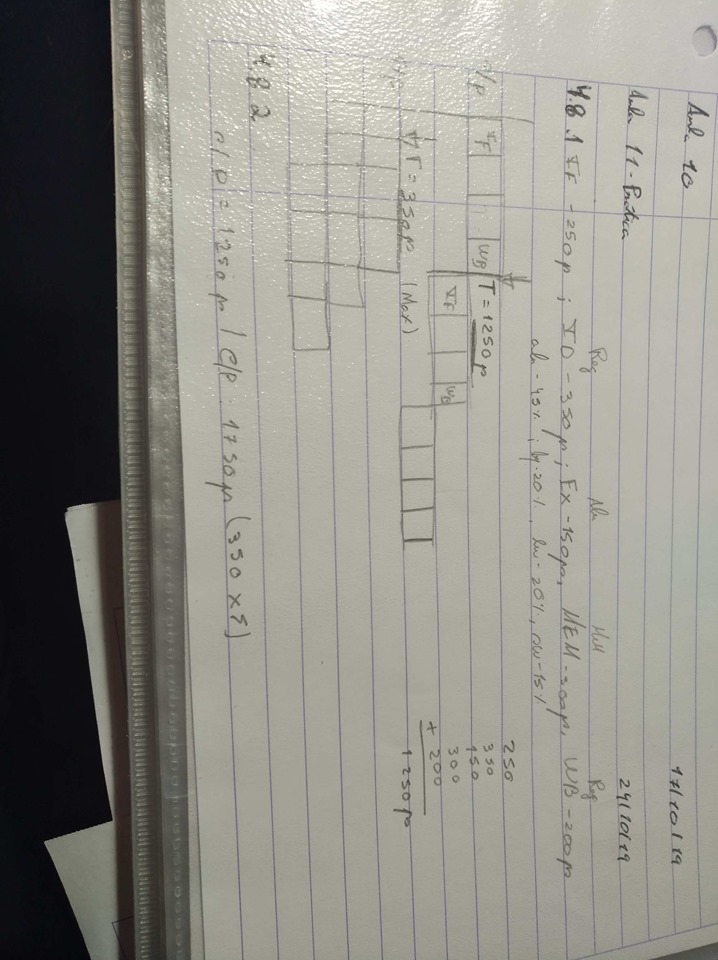 Aula 10
17/10/19
Aula 11 - Prática
24/10/19
Reg Alu Mem Reg
4.8.1 IF - 250p ; ID - 350p ; Ex - 150ps, MEM - 300ps, WB - 200ps
alu - 45% ; bq - 20%, lw - 20%, sw - 15%
s/p IF WB T = 1250 ps
IF WB
T = 350ps (Max)
250
350
150
300
+ 200
1250ps
4.8.2
s/p = 1250 ps / c/p : 1750 ps (350 x 5)